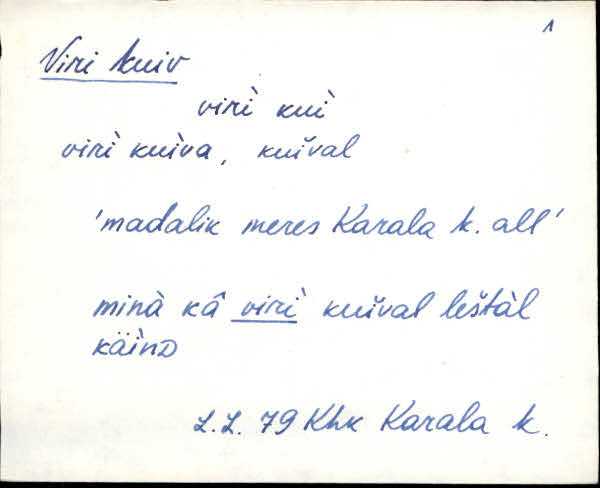 1
Viri kuiv
virì̮ kuì̮
virì̮ kuì̮va, kuì̮val
'madalik meres Karala k. all'
minà kâ virì̮ kuì̮val leštàl
käì̮nD
L.L. 79 Khk Karala k.